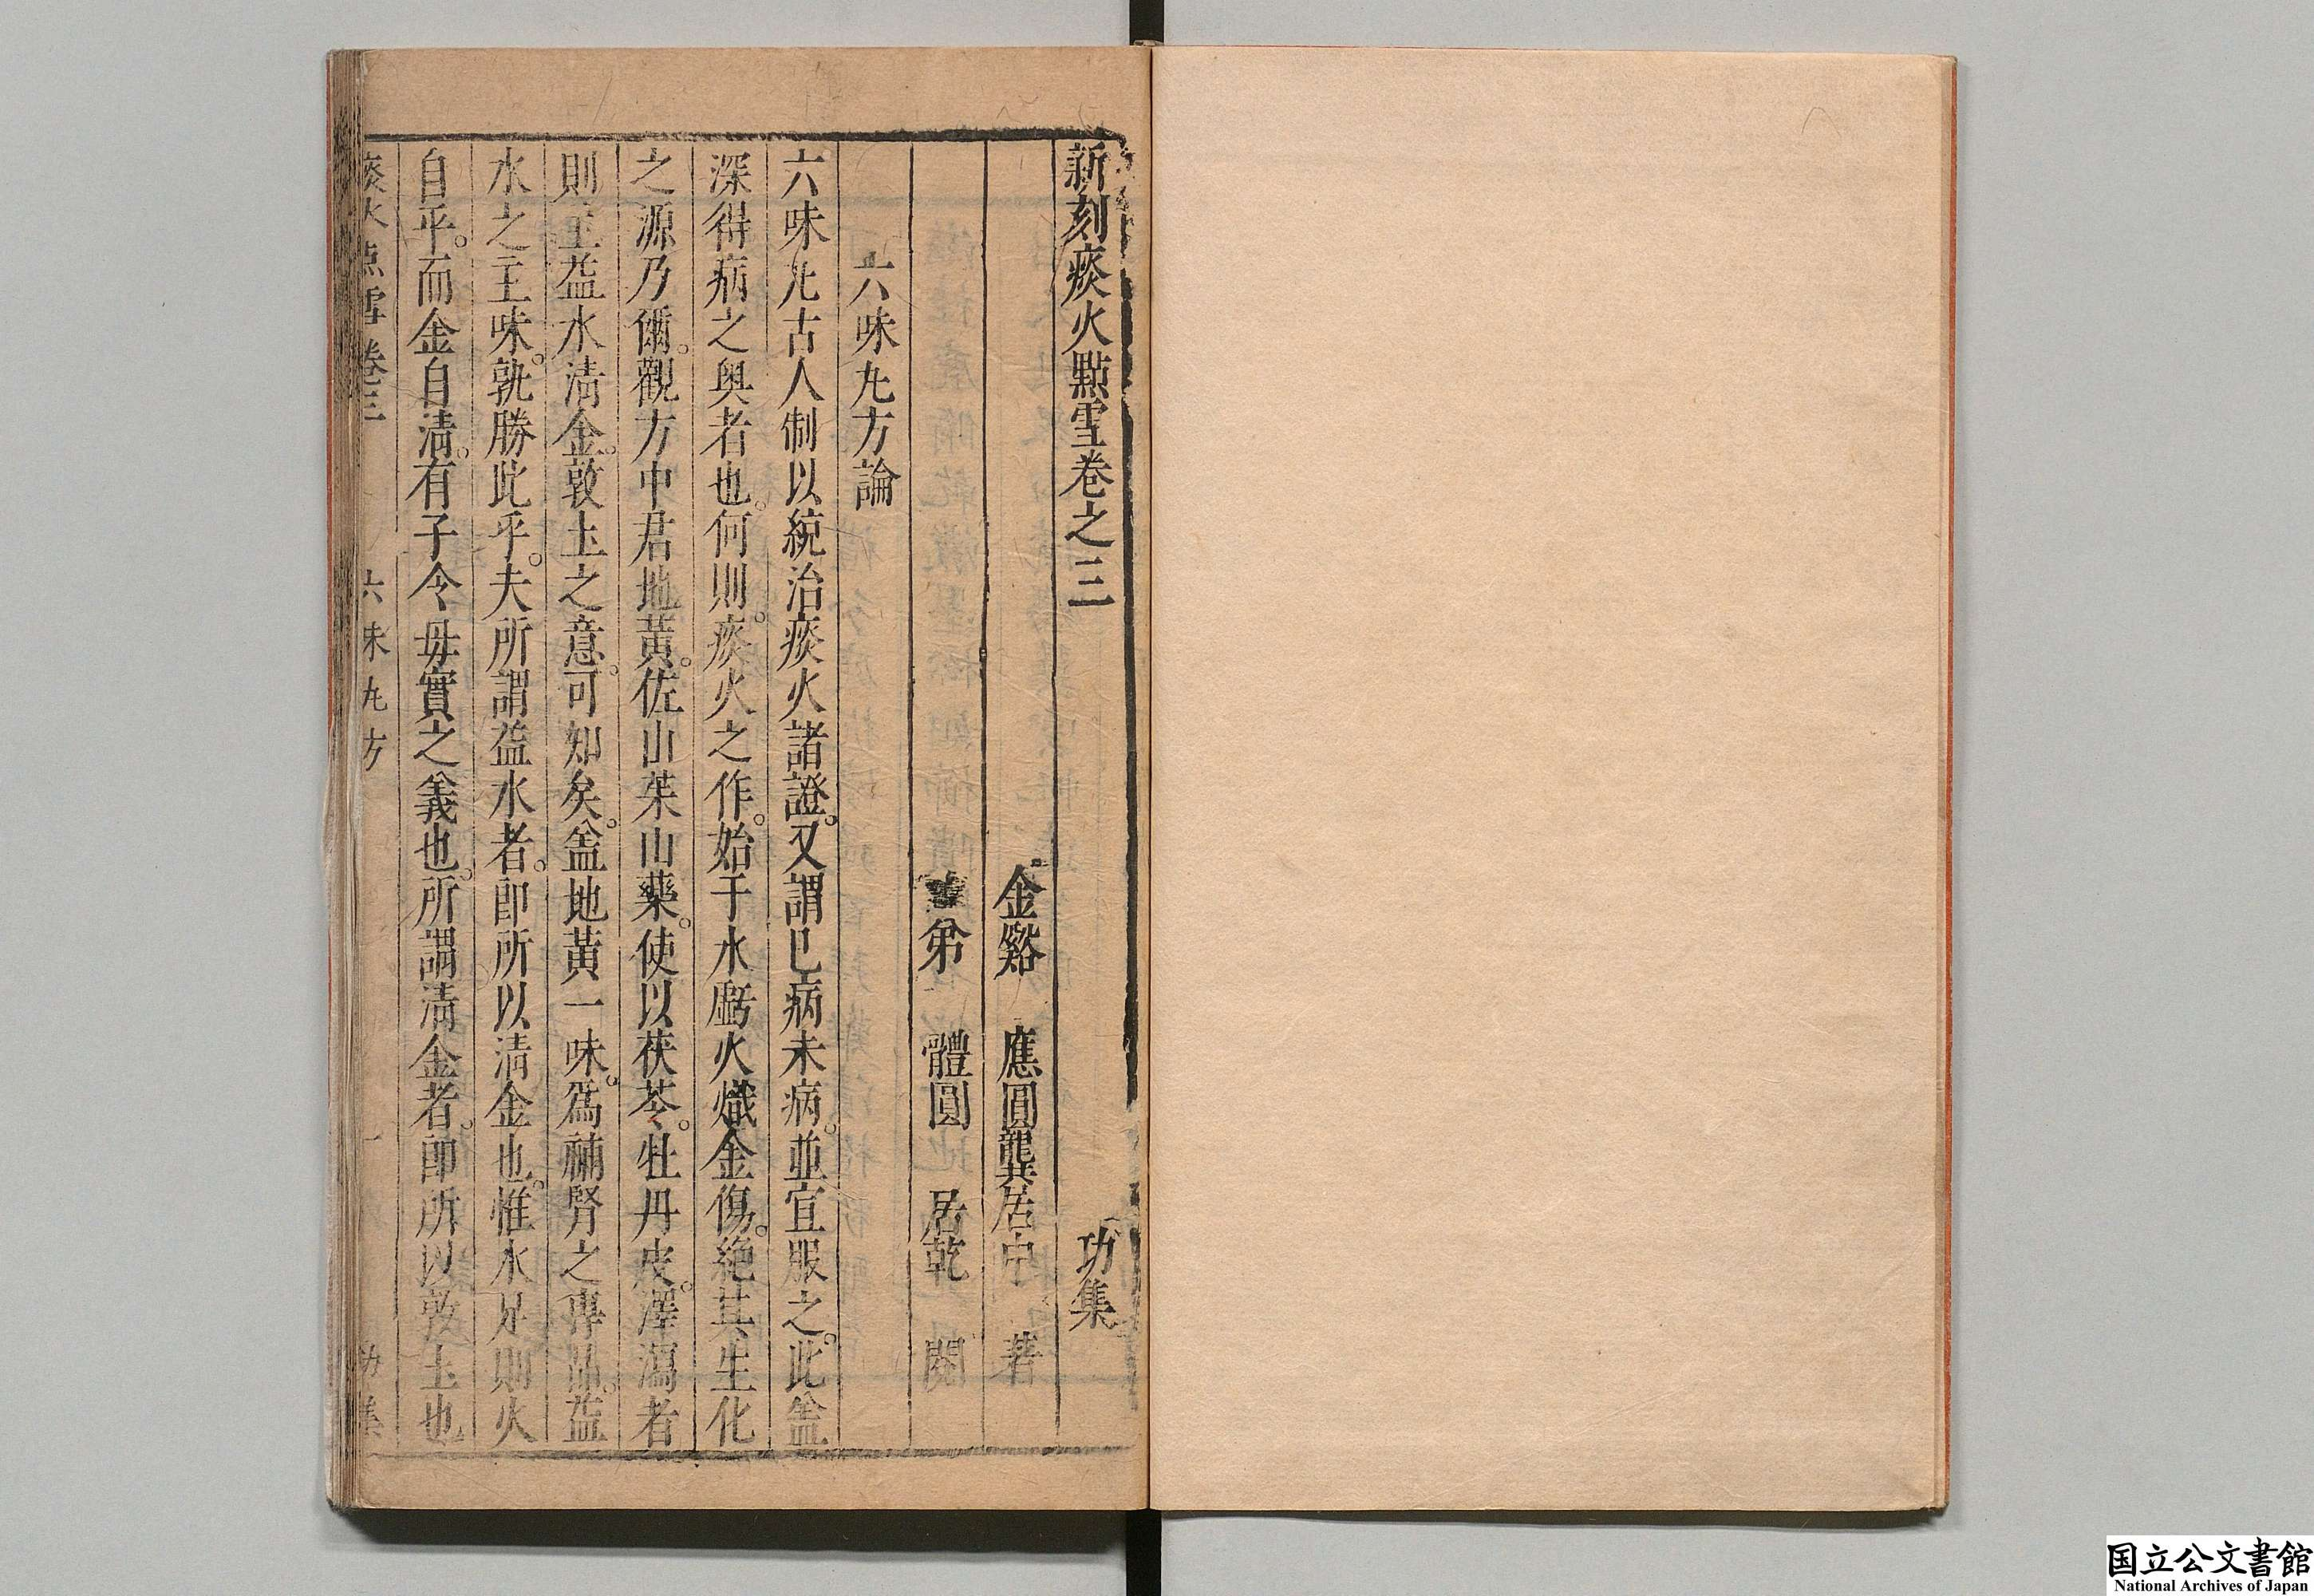 新刻痰火點雪卷之三
功集
金谿　應圓龔居中　著
弟　體圓　居乾　閱
六味丸方論
六味丸古人制以統治痰火諸證。又謂已病未病。並宜服之。此盖
深得病之奧者也。何則。痰火之作。始于水虧火熾金傷。絕其生化
之源乃爾。觀方中君地黃。佐山茱山藥。使以茯苓。牡丹皮。澤瀉者
則主益水清金。敦土之意。可知矣。盖地黃一味。爲補腎之專品。益
水之主味。孰勝此乎。夫所謂益水者。卽所以清金也。惟水足則火
自平。而金自清。有子令母實之義也。所謂清金者。卽所以敦土也
痰火点雪卷三　六味丸方　一　功集
国立公文書館
National Archives of Japan